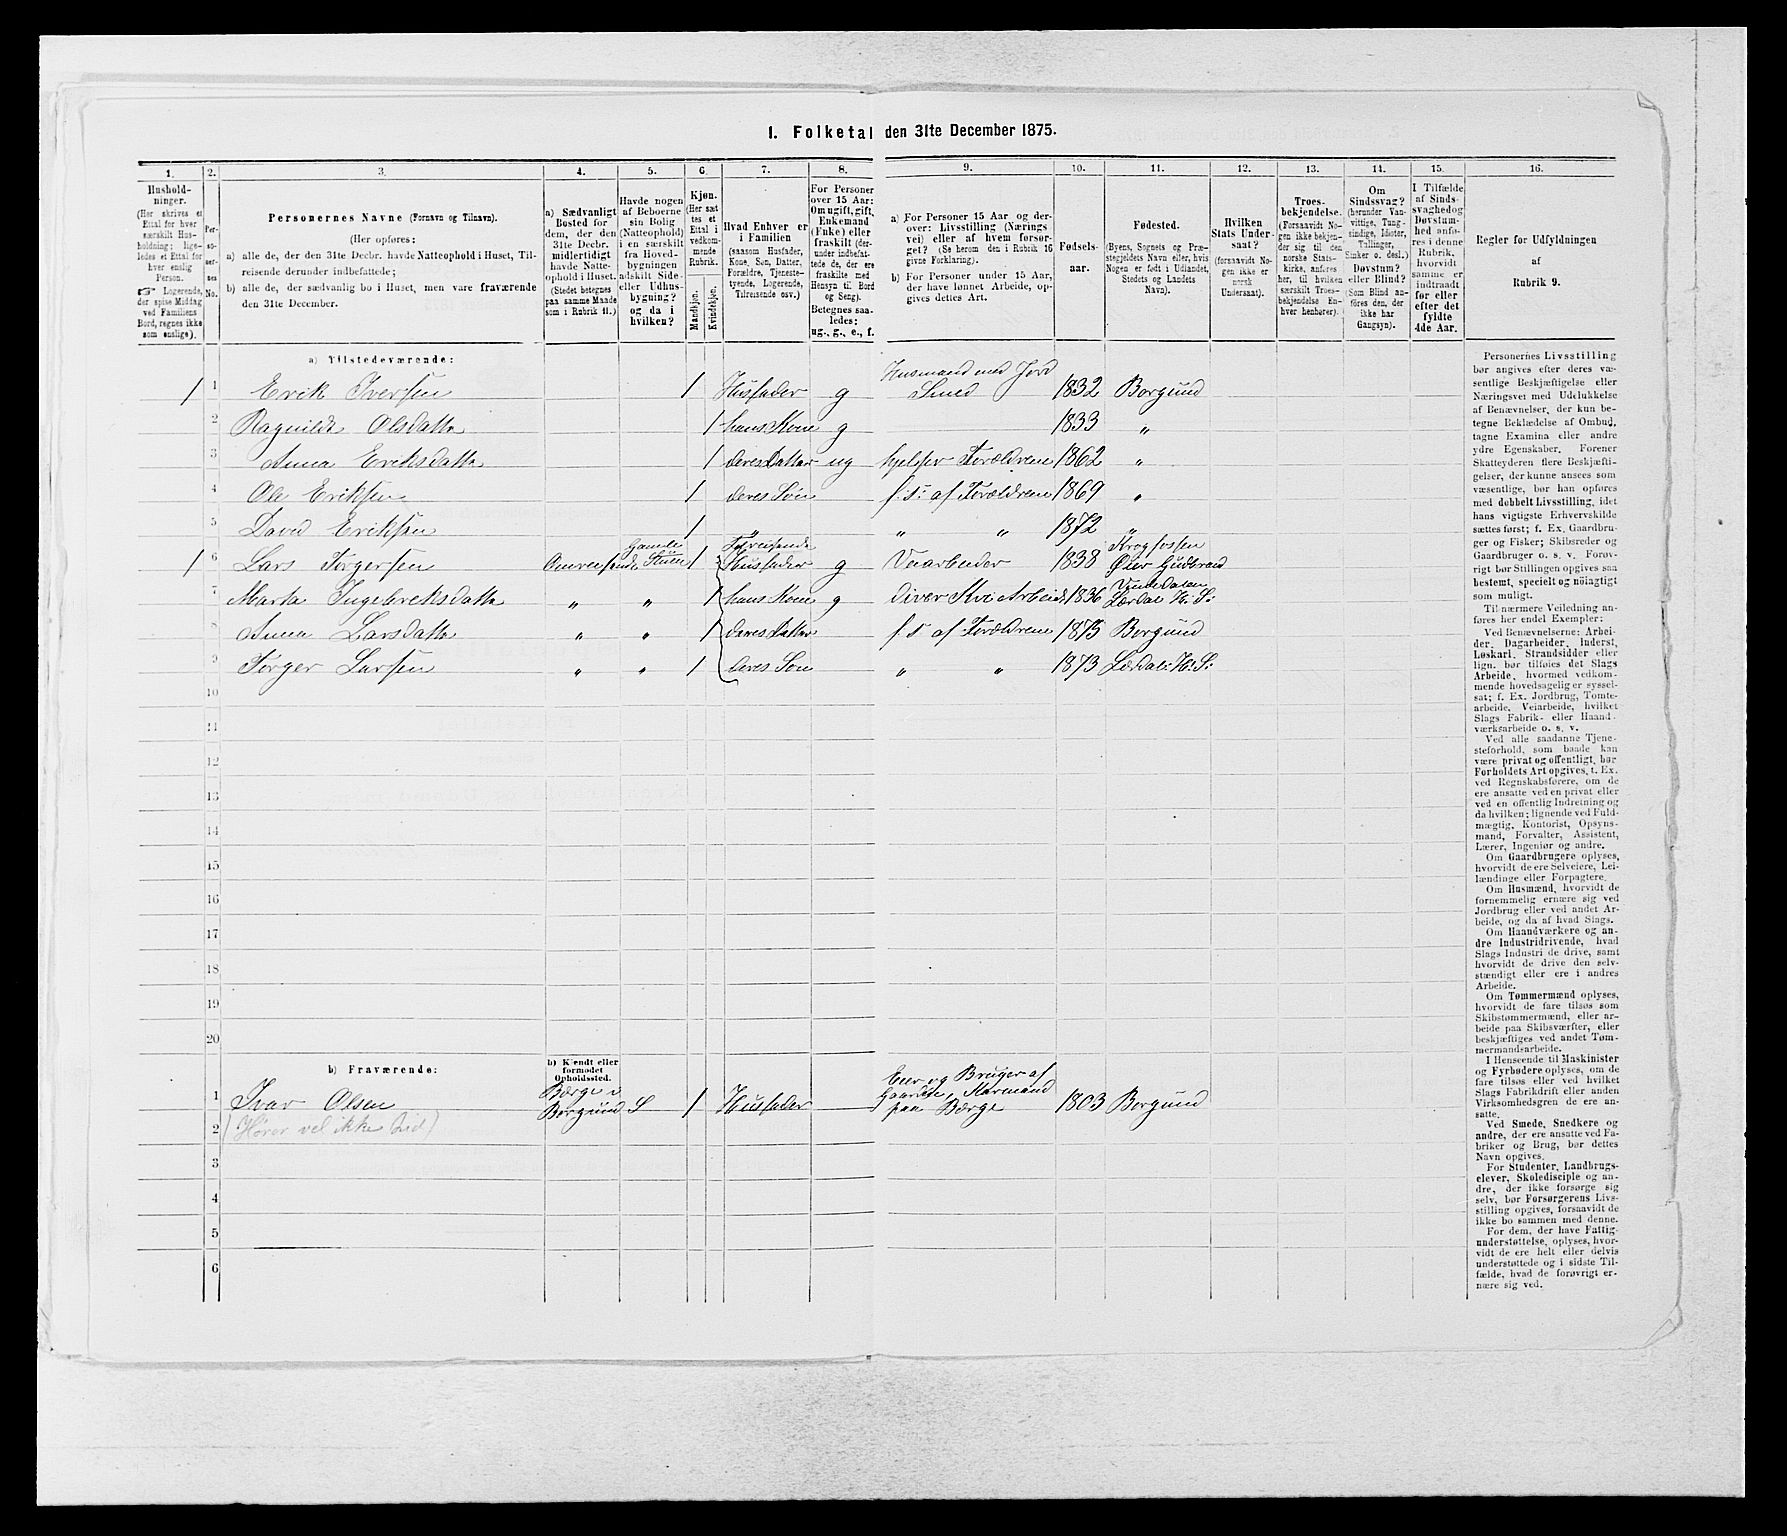 1. Folketal den 31te December 1875.
1. 2. 3. 4. 5. 6. 7. 8. 9. 10. 11. 12. 13. 14. 15. 16.
Hushold-
ninger.
(Her skrives et
Ettal for hver
særskilt Hus-
holdning; lige-
ledes et Ettal for
hver enslig
Person.
☞ Logerende,
der spise Middag
ved Familiens
Bord, regnes ikke
som enslige).
Per-
so-
ner-
nes
No.
Personernes Navne (Fornavn og Tilnavn).
(Her opføres:
a) alle de, der den 31te Decbr. havde Natteophold i Huset, Til-
reisende derunder indbefattede;
b) alle de, der sædvanlig bo i Huset, men vare fraværende
den 31te December.
a) Sædvanligt
Bosted for
dem, der den
31te Decbr.
midlertidigt
havde Natte-
ophold i Huset.
(Stedet betegnes
paa samme Maade
som i Rubrik 11.)
Havde nogen
af Beboerne
sin Bolig
(Natteophold)
i en særskilt
fra Hoved-
bygningen
adskilt Side-
eller Udhus-
bygning?
og da i
hvilken?
Kjøn.
(Her sæt
tes et
Ettal i
vedkom-
mende
Rubrik.
Mandkjøn.
Kvindekjøn.
Hvad Enhver er
i Familien
(saasom Husfader,
Kone, Søn, Datter,
Forældre, Tjeneste-
tyende, Logerende,
Tilreisende osv.)
For Personer
over 15 Aar:
Om ugift, gift,
Enkemand
(Enke) eller
fraskilt (der-
under indbefat-
tede de, der ere
fraskilte med
Hensyn til Bord
og Seng).
Betegnes saa-
ledes:
ug., g., e., f.
a) For Personer 15 Aar og der-
over: Livsstilling (Nærings
vei) eller af hvem forsør-
get? (Se herom den i Rubrik 16
givne Forklaring).
b) For Personer under 15 Aar,
der have lønnet Arbeide, op-
gives dettes Art.
Fødsels-
aar.
Fødested.
(Byens, Sognets og Præ-
stegjeldets Navn eller, hvis
Nogen er født i Udlandet,
Stedets og Landets
Navn).
Hvilken
Stats Under-
saat?
(forsaavidt No-
gen ikke er
norsk
Undersaat).
Troes-
bekjendelse.
(Forsaavidt No-
gen ikke bekjen-
der sig til den
norske Stats-
kirke, anføres
her, til hvilken
særskilt Troes-
bekjendelse En-
hver henhører).
Om
Sindssvag?
(herunder Van-
vittige, Tung-
sindige, Idioter,
Tullinger,
Sinker o. desl.)
Døvstum?
eller Blind?
(Som Blind an-
føres den, der
ikke har
Gangsyn).
I Tilfælde
af Sinds-
svaghedog
Døvstum-
hed anfø-
res i denne
Rubrik,
hvorvidt
samme er
indtraadt
før eller
efter det
fyldte
4de Aar.
Regler for Udfyldningen
af
Rubrik 9.
a) Tilstedeværende:
1 1 Erik Iversen 1 Husfader g Husmand med Jord Smed 1832 Borgund
2 Ragnilde Olsdatter 1 hans Kone g 1833 "
3 Anna Eriksdatter 1 deres Datter ug hjelper Forældrene 1862 "
4 Ole Eriksen 1 deres Søn f:s: af Forældrene 1869 "
5 David Eriksen 1 " " " 1872 "
1 6 Lars Torgersen Omreisende Gamle Stuen 1 Husfader g Veiarbeider 1838 Krogfossen Øier Gudbrand
7 Marta Ingebreksdatter " " 1 hans Kone g diver Kvi Arbeid 1836 Lærdal H: S:
8 Anna Larsdatter " " 1 deres Datter f:s af Forældrene 1875 Borgund
9 Torger Larsen " " 1 deres Søn " " 1873 Lærdal: H: S:
10
11
12
13
14
15
16
17
18
19
20
b) Fraværende:
b) Kjendt eller
formodet
Opholdssted.
1 Ivar Olsen Børge i Borgund S 1 Husfader Eier og Bruger af Gaarden, Kaarmand paa Børge 1803 Borgund
2 (Hører vel ikke hid)
3
4
5
6
Personernes Livsstilling
bør angives efter deres væ-
sentlige Beskjæftigelse eller
Næringsvei med Udelukkelse
af Benævnelser, der kun be-
tegne Beklædelse af Ombud,
tagne Examina eller andre
ydre Egenskaber. Forener
Skatteyderen flere Beskjæfti-
gelser, der kunne ansees som
væsentlige, bør han opføres
med dobbelt Livsstilling, idet
hans vigtigste Erhvervskilde
sættes først; f. Ex. Gaardbru-
ger og Fisker; Skibsreder og
Gaardbruger o. s. v. Forøv-
rigt bør Stillingen opgives saa
bestemt, specielt og nøiagtigt
som muligt.
Til nærmere Veiledning an-
føres her endel Exempler:
Ved Benævnelserne: Arbei-
der, Dagarbeider, Inderst,
Løskarl, Strandsidder eller
lign. bør tilføies det Slags
Arbeide, hvormed vedkom-
mende hovedsagelig er syssel-
sat; f. Ex. Jordbrug, Tomte-
arbeide, Veiarbeide, hvilket
Slags Fabrik- eller Haand-
værksarbeide o. s. v.
Ved alle saadanne Tjene-
steforhold, som baade kan
være privat og offentligt, bør
Forholdets Art opgives, t. Ex.
ved Regnskabsførere, om de
ere ansatte ved en privat eller
ved en offentlig Indretning og
da hvilken; lignende ved Fuld-
mægtig, Kontorist, Opsyns-
mand, Forvalter, Assistent,
Lærer, Ingeniør og andre.
Om Gaardbrugere oplyses,
hvorvidt de ere Selveiere, Lei-
lændinge eller Forpagtere.
Om Husmænd, hvorvidt de
fornemmelig ernære sig ved
Jordbrug eller ved andet Ar-
beide, og da af hvad Slags.
Om Haandværkere og an-
dre Industridrivende, hvad
Slags Industri de drive, samt
hvorvidt de drive den selv-
stændigt eller ere i andres
Arbeide.
Om Tømmermænd oplyses,
hvorvidt de fare tilsøs som
Skibstømmermænd, eller ar-
beide paa Skibsværfter, eller
beskjæftiges ved andet Tøm-
mermandsarbeide.
I Henseende til Maskinister
og Fyrbødere oplyses, om de
fare tilsøs eller ved hvilket
Slags Fabrikdrift eller anden
Virksomhedsgren de ere an-
satte.
Ved Smede, Snedkere og
andre, der ere ansatte ved Fa-
briker og Brug, bør dettes
Navn opgives.
For Studenter, Landbrugs-
elever, Skoledisciple og an-
dre, der ikke forsørge sig
selv, bør Forsørgerens Livs-
stilling opgives, forsaavidt de
ikke bo sammen med denne.
For dem, der have Fattig-
understøttelse, oplyses, hvor-
vidt de ere helt eller delvis
understøttede og i sidste Til-
fælde, hvad de forøvrigt er-
nære sig ved.